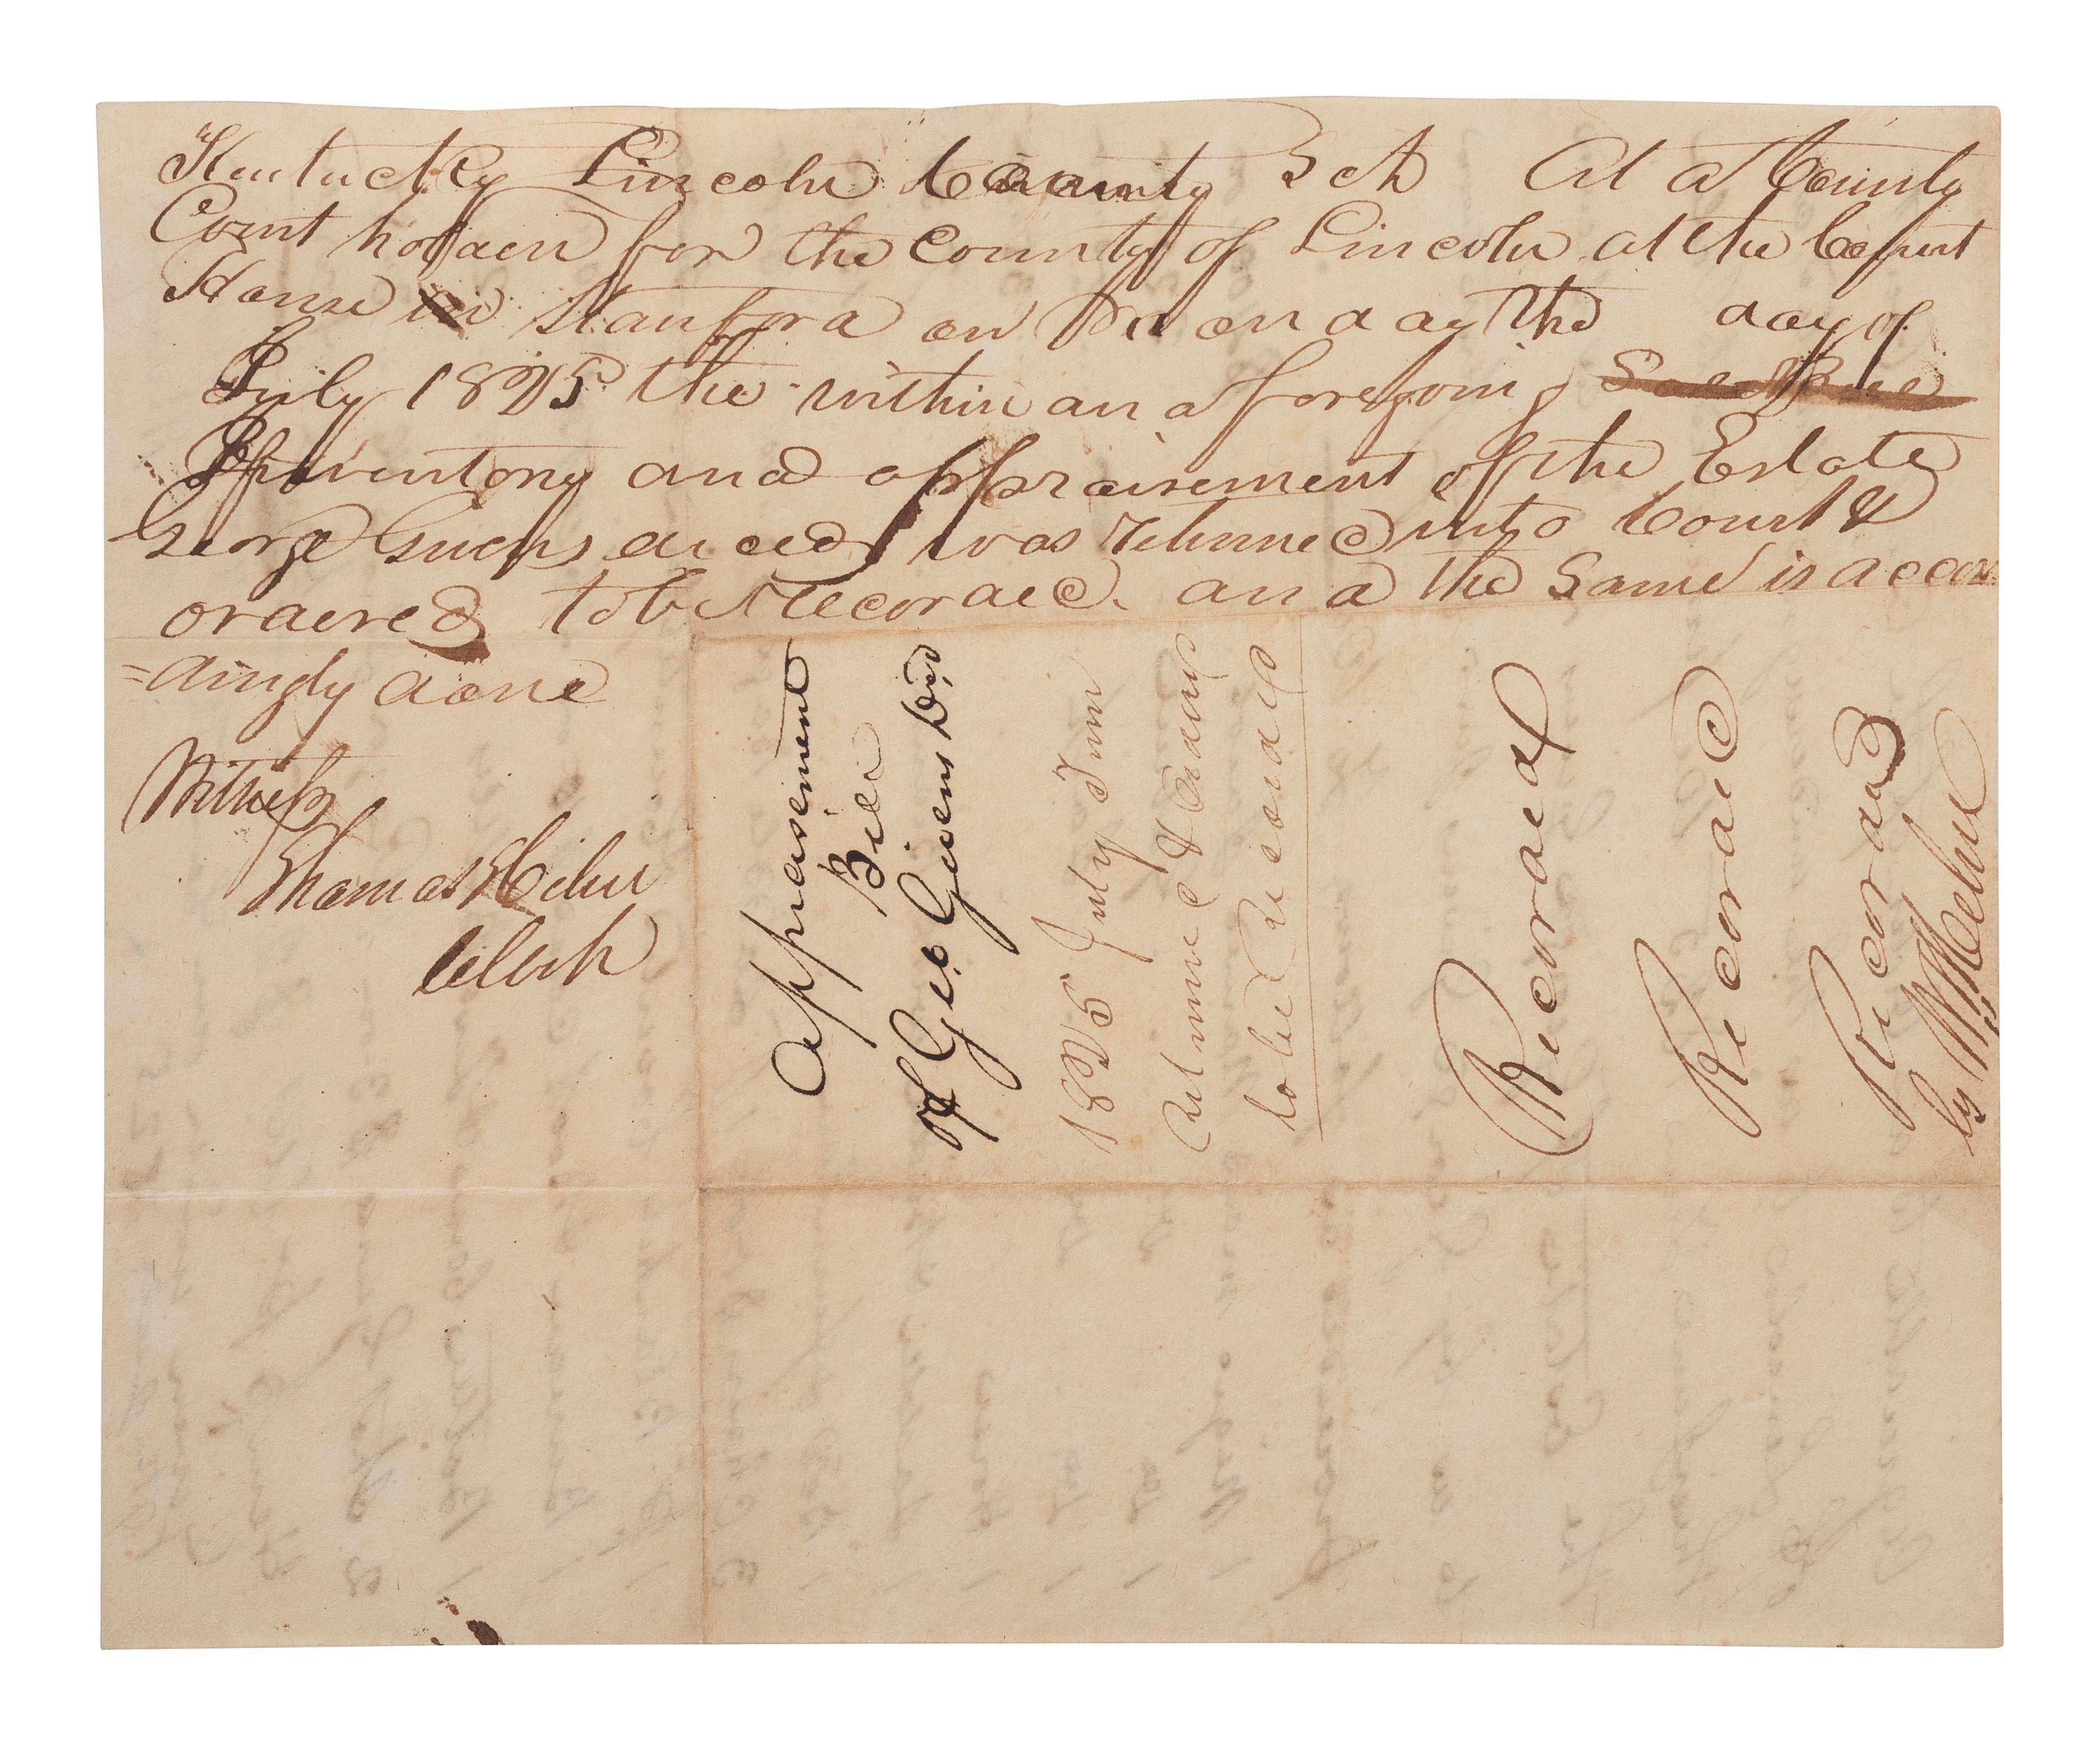 Kentucky Lincoln County Sct At a County
Court holden for the County of Lincoln at the Court
House in Stanford on Monday the day of
July 1825 the within and foregoing Sale Bill
Inventory and appraisement of the Estate
George Givens deced was returned into Court &
ordered to be recorded. and the same is accor
=dingly done
Witness
Thomas Helm
Clerk
Appraisement
Bill
of Geo Givens Dd
1825 July Term
Returned & Ordered
to be Recorded
Recorded
Recorded
Recorded
by Helm